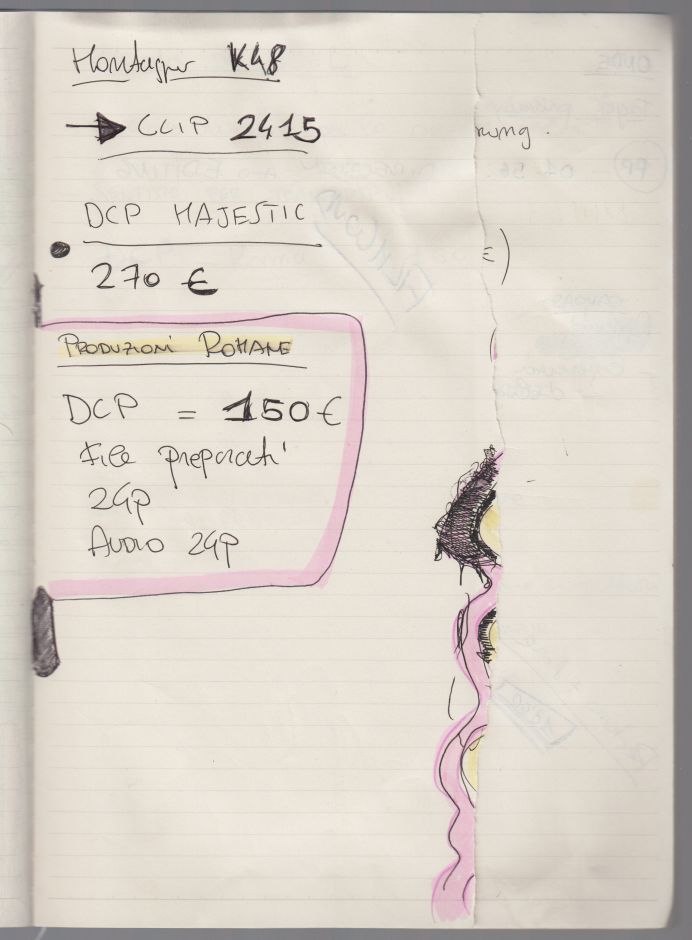 Montaggio K48
CLIP 2415
rung.
DCP MAJESTIC
€)
270 €
PRODUZIONI ROMANE
DCP = 150 €
File preparati
24p
AUDIO 24p